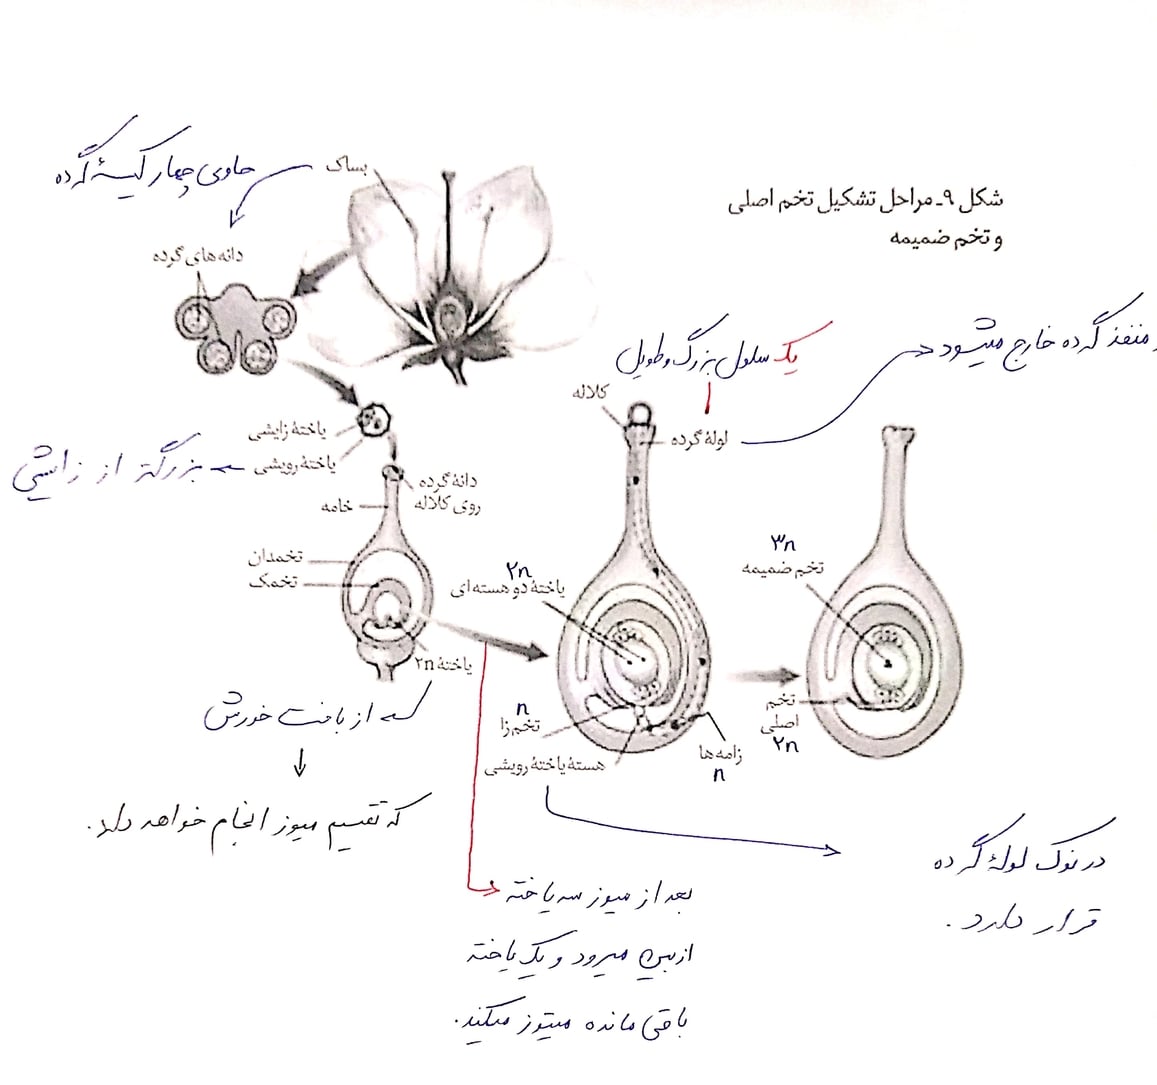 شکل ۹ـ مراحل تشکیل تخم اصلی
و تخم ضمیمه
حاوی چهار کیسهٔ گرده
بساک
دانه‌های گرده
یک سلول بزرگ و طویل
منفذ گرده خارج میشود
کلاله
لولهٔ گرده
یاختهٔ زایشی
یاختهٔ رویشی
بزرگتر از زایشی
دانهٔ گرده
روی کلاله
خامه
تخمدان
تخمک
یاختهٔ ۲n
۲n
یاختهٔ دو هسته‌ای
۳n
تخم ضمیمه
n
تخم‌زا
هستهٔ یاختهٔ رویشی
زامه‌ها
n
تخم
اصلی
۲n
از بافت خورش
که تقسیم میوز انجام خواهد داد.
بعد از میوز سه یاخته
ازبین میرود و یک یاخته
باقی مانده میتوز میکند.
در نوک لولهٔ گرده
قرار دارد.